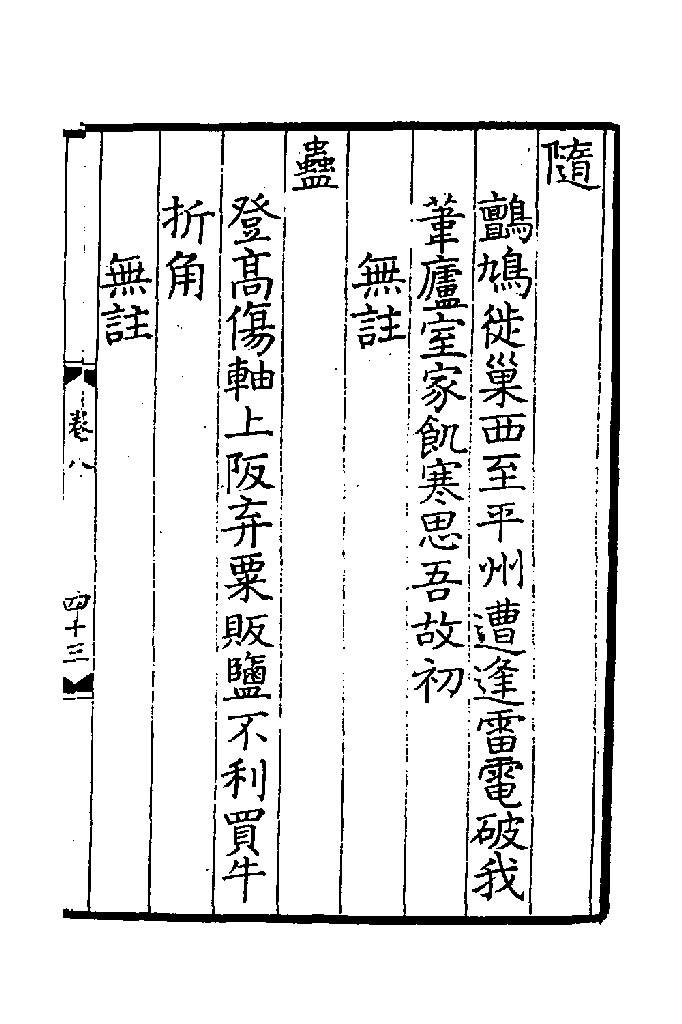 隨
鸇鳩徙巢西至平州遭逢雷電破我
葦廬室家飢寒思吾故初
無註
蠱
登高傷軸上阪弃粟販鹽不利買牛
折角
無註
卷八
四十三